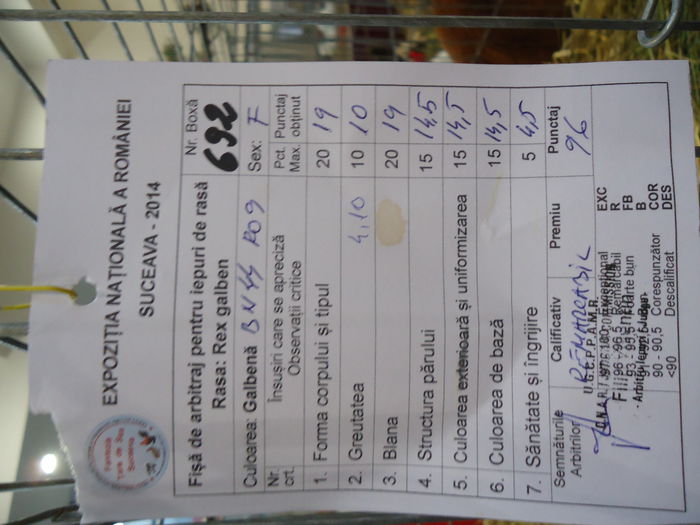 EXPOZIȚIA NAȚIONALĂ A ROMÂNIEI
SUCEAVA - 2014
Fișă de arbitraj pentru iepuri de rasă
Nr. Boxă
Rasa: Rex galben
692
Culoarea: Galbenă BN44 RO9
Sex: F
Nr. crt.
Însușiri care se apreciză
Observații critice
Pct. Max.
Punctaj obținut
1. Forma corpului și tipul 20 19
2. Greutatea 4,10 10 10
3. Blana 20 19
4. Structura părului 15 14,5
5. Culoarea exterioară și uniformizarea 15 14,5
6. Culoarea de bază 15 14,5
7. Sănătate și îngrijire 5 4,5
Semnăturile Arbitrilor
Calificativ
Premiu
Punctaj
REMARCABIL
96
EXC
96 - 96,5 Remarcabil R
FB
B
90 - 90,5 Corespunzător COR
<90 Descalificat DES